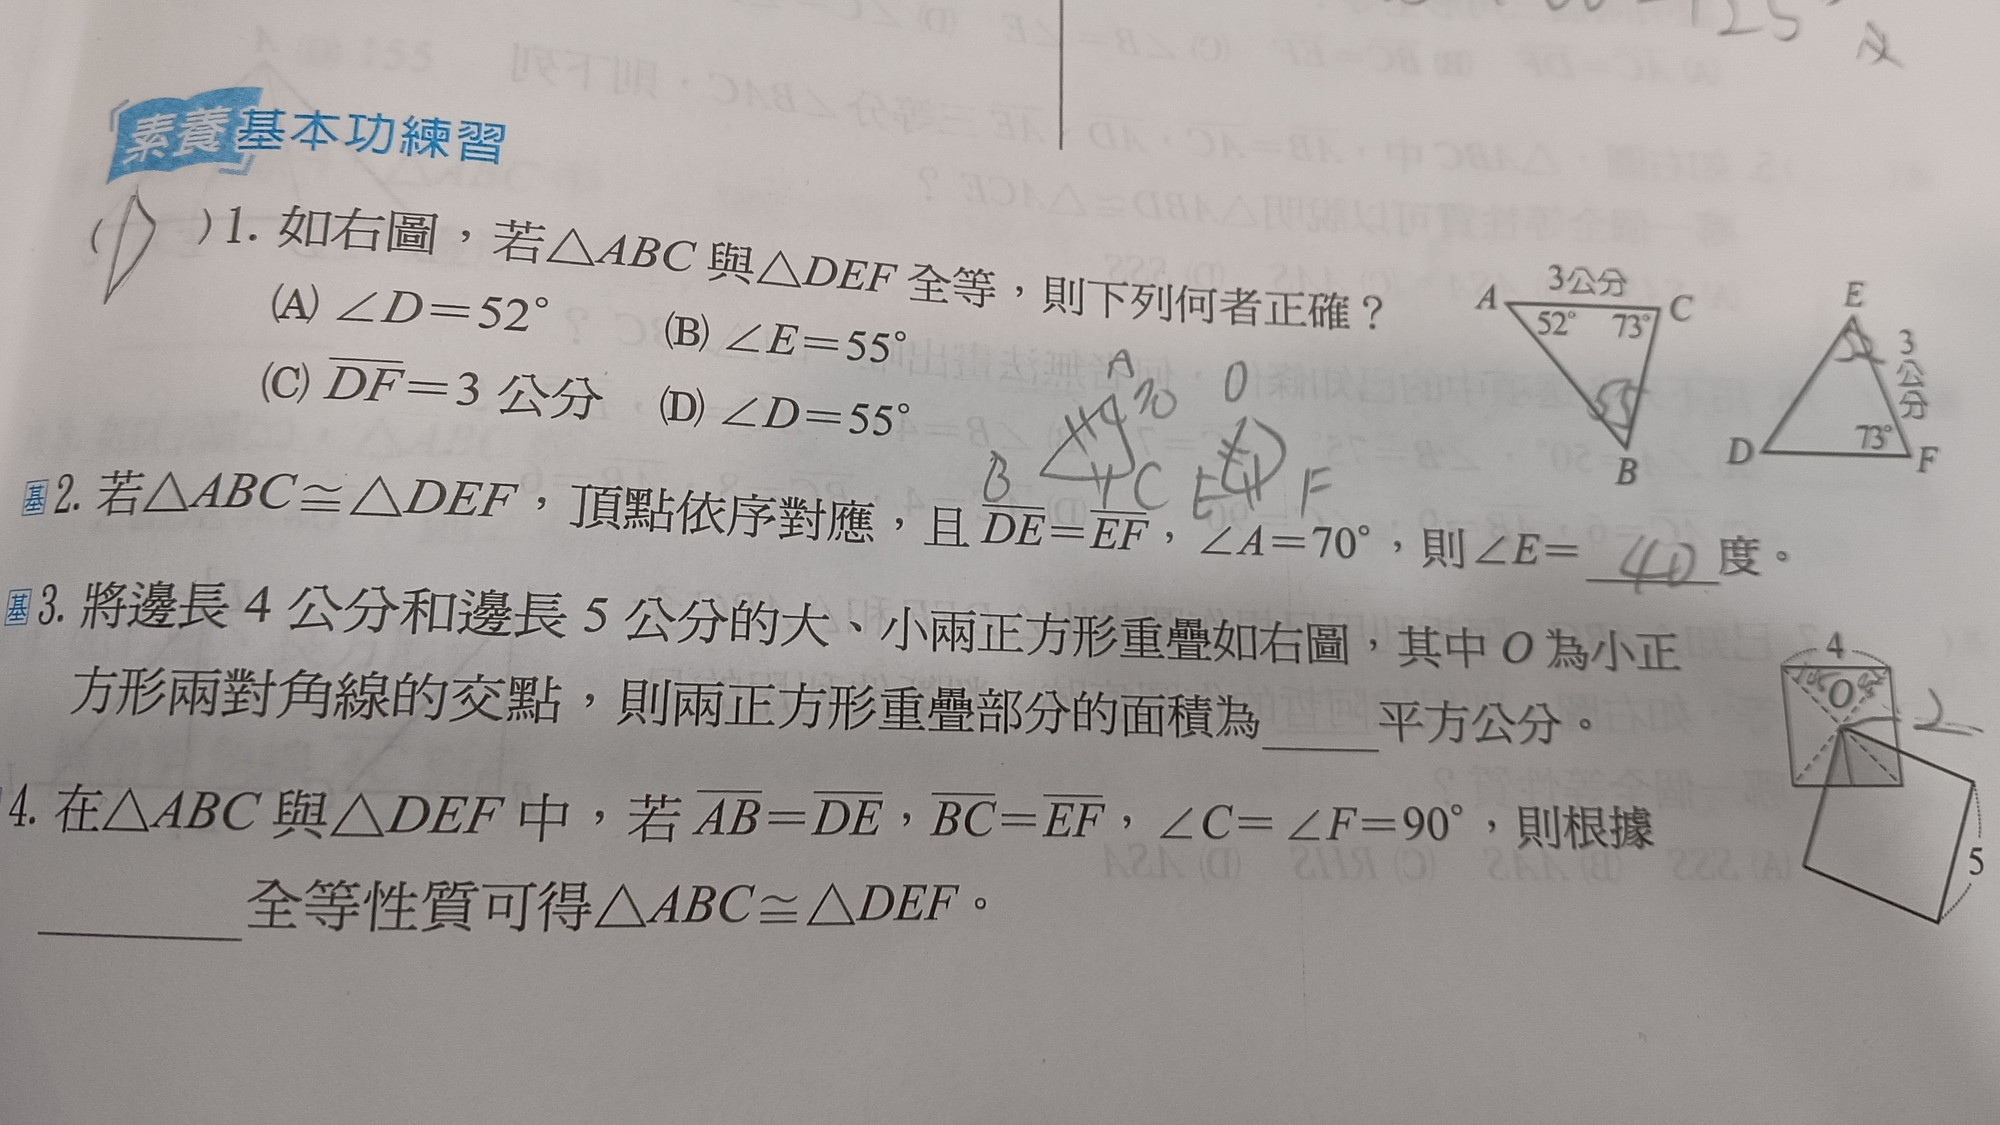 125
素養基本功練習
( D )1. 如右圖，若△ABC 與△DEF 全等，則下列何者正確？
(A) ∠D=52° (B) ∠E=55°
(C) DF=3 公分 (D) ∠D=55°
A 3公分 C
52° 73°
55
B
E
52 3公分
D 73° F
A 70 D
B C E F
基2. 若△ABC≅△DEF，頂點依序對應，且 DE=EF，∠A=70°，則∠E= 40 度。
基3. 將邊長 4 公分和邊長 5 公分的大、小兩正方形重疊如右圖，其中 O 為小正
方形兩對角線的交點，則兩正方形重疊部分的面積為____平方公分。
4
O
2
5
4. 在△ABC 與△DEF 中，若 AB=DE，BC=EF，∠C=∠F=90°，則根據
________全等性質可得△ABC≅△DEF。